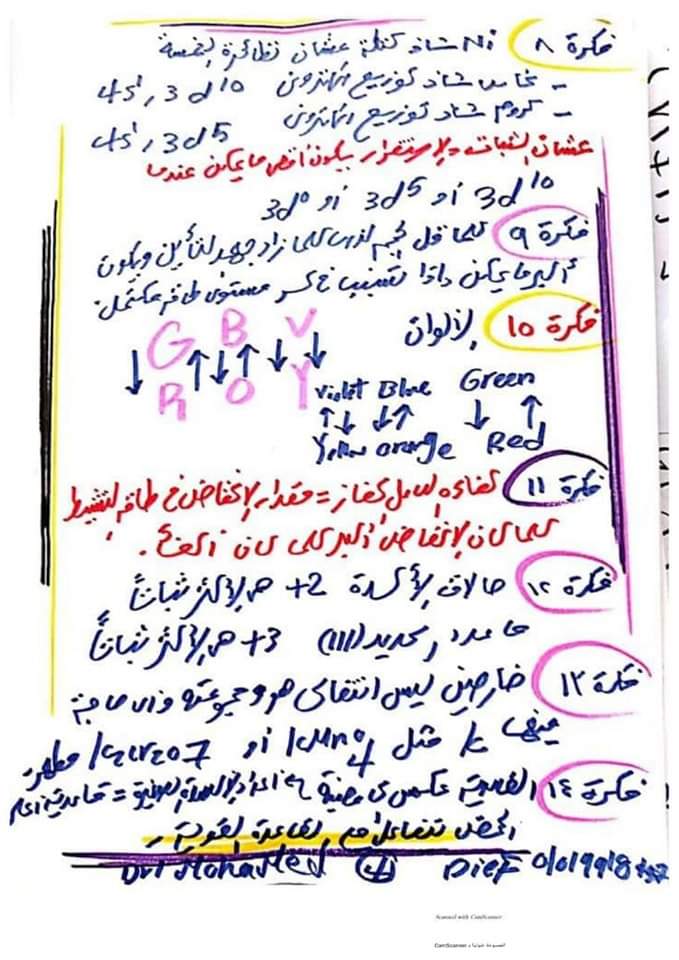 فكرة ٨ Ni شاذ كتلة عشان نظائرة الخمسة
- نحاس شاذ توزيع الكترونى 4s¹, 3d¹⁰
- كروم شاذ توزيع الكترونى 4s¹, 3d⁵
عشان الثبات = الإستقرار بيكون أقصى ما يمكن عندما
3d¹⁰ أو 3d⁵ أو 3d⁰
فكرة ٩ كلما قل حجم الذرة كلما زاد جهد التأين ويكون
أكبر ما يمكن إذا تسبب فى كسر مستوى طاقة مكتمل
فكرة ١٥ الألوان
G B V
R O Y
Violet Blue Green
Yellow orange Red
فكرة ١١ كفاءه العامل الحفاز = مقدار الإنخفاض فى طاقة التنشيط
كلما كان الإنخفاض أكبر كلما كان أكفأ.
فكرة ١٢ حالات الأكسدة 2+ هى الأكثر ثباتاً
ماعدا الحديد (III) 3+ هى الأكثر ثباتاً
فكرة ١٣ خارصين ليس انتقالى هو ومجموعته وأى حاجة
فيها K مثل KMnO₄ أو K₂Cr₂O7
فكرة ١٤ القاعدية عكس
الحمض تتفاعل مع القاعدة القوية
Dr/ Mohamed Dief
Scanned with CamScanner
CamScanner